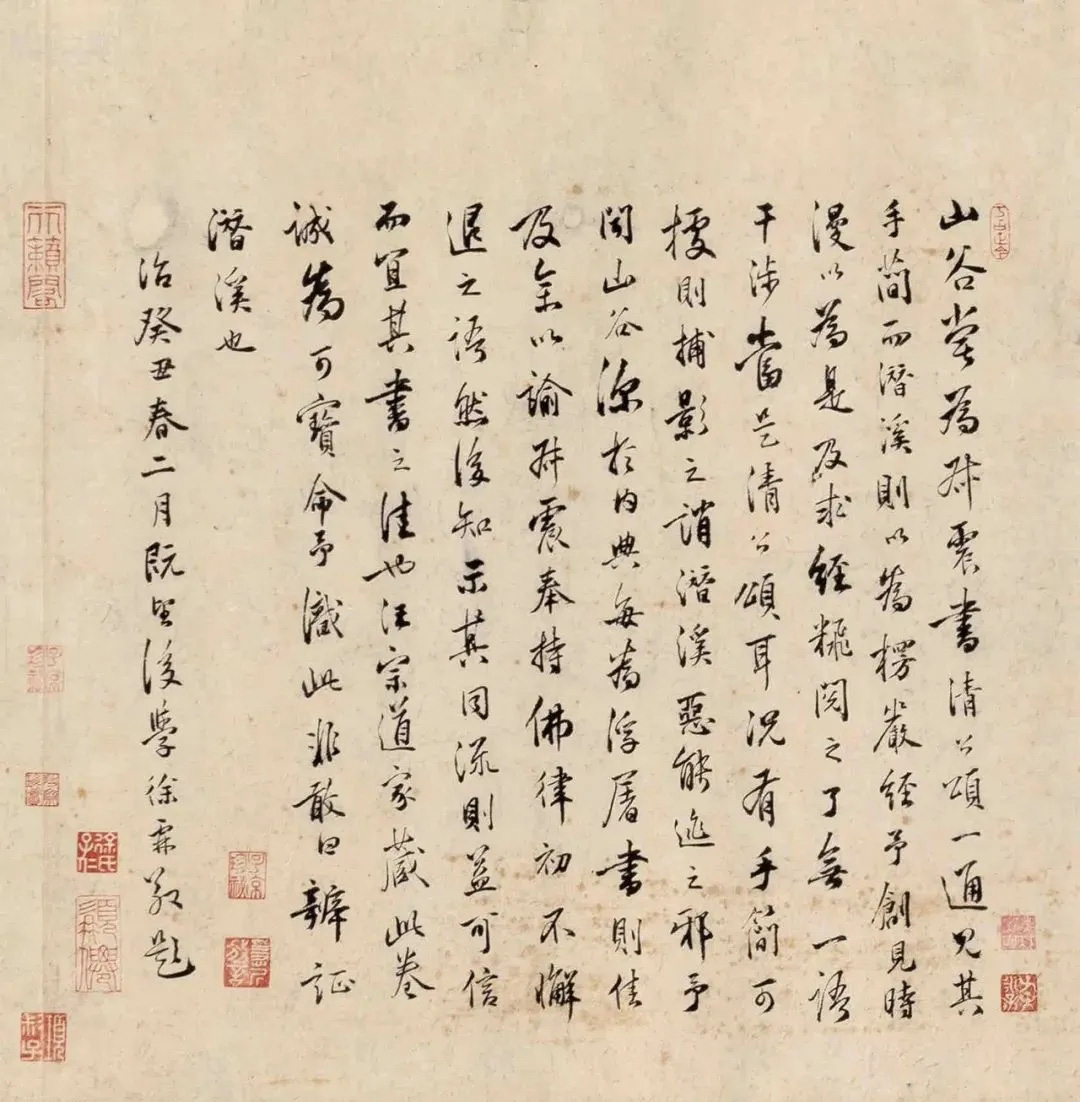 山谷嘗為叔震書清公頌一通見其
手簡而潛溪則以為楞嚴經予創見時
漫以為是及求經閱之了無一語
干涉當是清公頌耳況有手簡可
據則捕影之誚潛溪惡能逃之邪予
聞山谷深於内典每為浮屠書則佳
及余以諭叔震奉持佛律初不懈
退之語然後知示其同流則益可信
而宜其書之佳也汪宗道家藏此卷
誠為可寶命予識此非敢曰辨証
潛溪也
治癸丑春二月既望後學徐霖敬題
天籟閣
徐氏子仁
項叔子